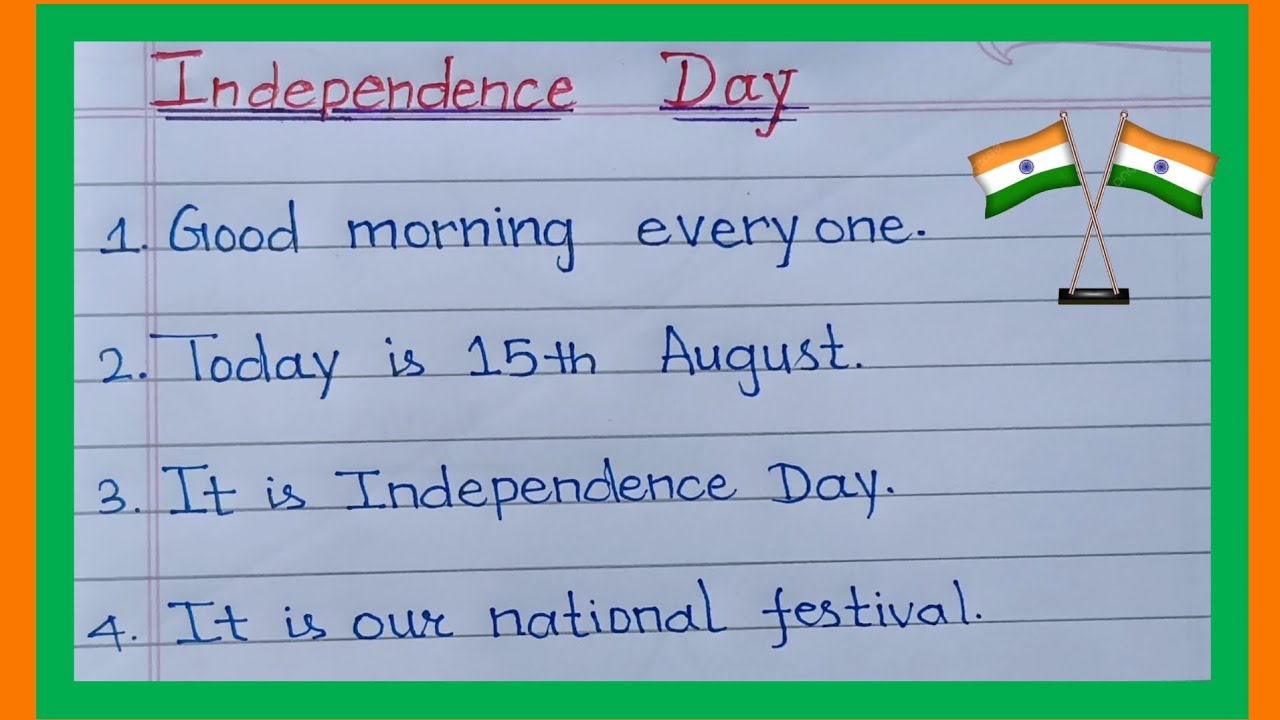 Independence Day
1. Good morning everyone.
2. Today is 15th August.
3. It is Independence Day.
4. It is our national festival.